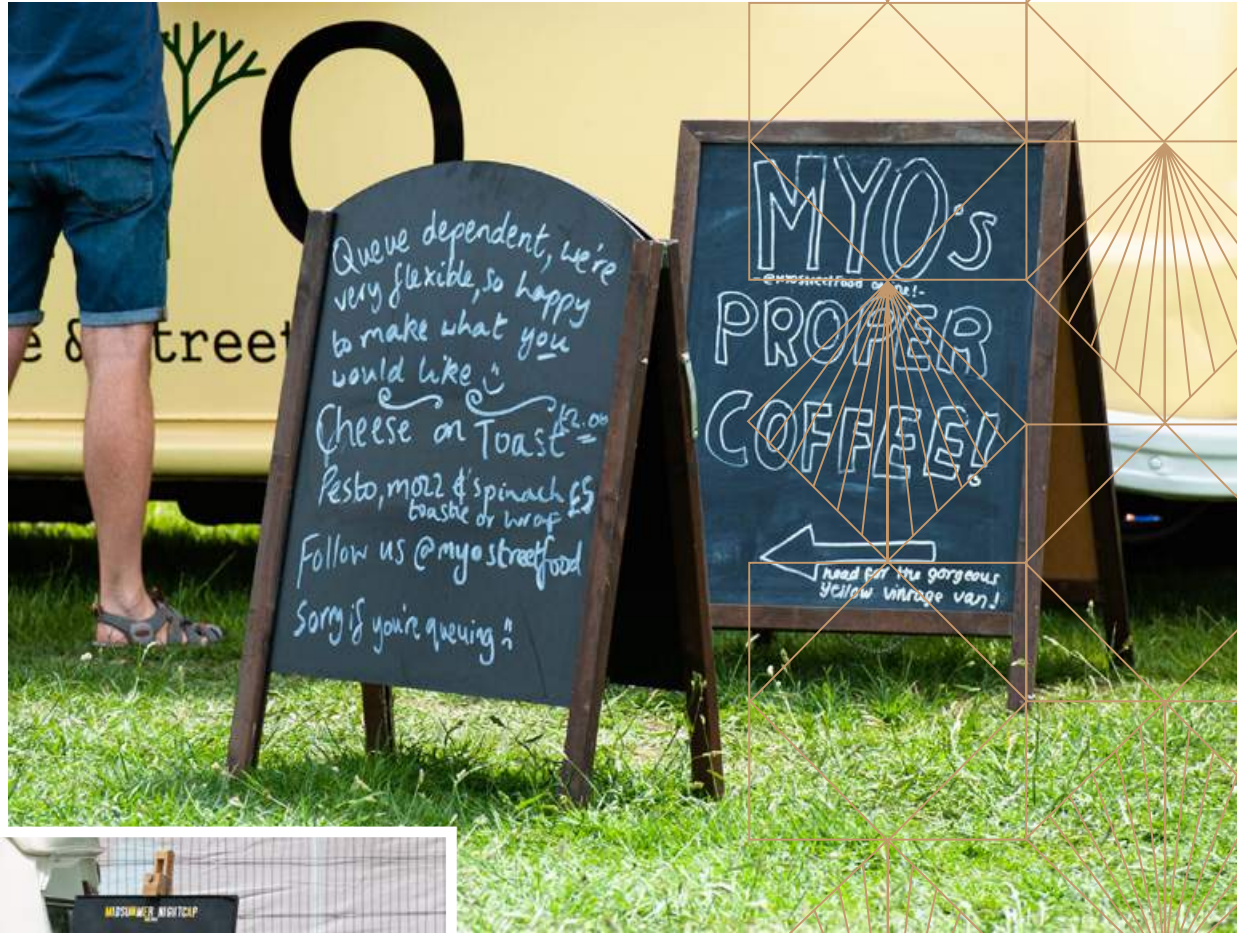 e & Street
Queue dependent, we're
very flexible, so happy
to make what you
would like
Cheese on Toast £2.00
Pesto, mozz & spinach £5
toastie or wrap
Follow us @myostreetfood
Sorry if you're queuing
MYO's
-@myostreetfood online!-
PROPER
COFFEE!
head for the gorgeous
yellow vintage van!
MIDSUMMER NIGHTCAP